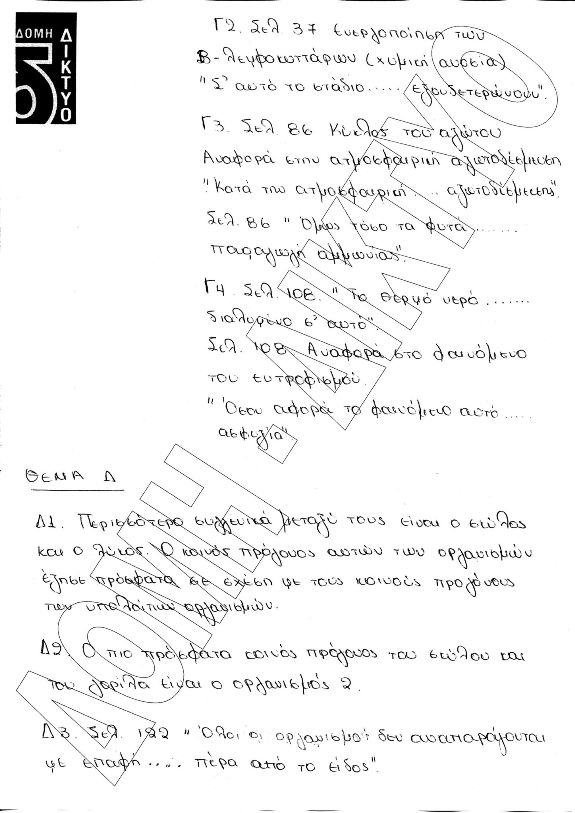 ΔΟΜΗ
ΔΙΚΤΥΟ
Γ2. Σελ 37 Ενεργοποίηση των
Β-λεμφοκυττάρων (χυμική ανοσία)
"Σ' αυτό το στάδιο..... εξουδετερώνουν".
Γ3. Σελ 86 Κύκλος του αζώτου
Αναφορά στην ατμοσφαιρική αζωτοδέσμευση
"Κατά την ατμοσφαιρική.... αζωτοδέσμευσης"
Σελ. 86 "Όμως τόσο τα φυτά.......
παραγωγή αμμωνίας"
Γ4. Σελ. 108. "Το θερμό νερό.......
διαλυμένο σ' αυτό"
Σελ. 108 Αναφορά στο φαινόμενο
του ευτροφισμού.
"Όσον αφορά το φαινόμενο αυτό.....
ασφυξία"
ΘΕΜΑ Δ
Δ1. Περισσότερο συγγενικά μεταξύ τους είναι ο σκύλος
και ο λύκος. Ο κοινός πρόγονος αυτών των οργανισμών
έζησε πρόσφατα σε σχέση με τους κοινούς προγόνους
των υπολοίπων οργανισμών.
Δ2 Ο πιο πρόσφατα κοινός πρόγονος του σκύλου και
του γορίλα είναι ο οργανισμός 2.
Δ3. Σελ. 122 "Όλοι οι οργανισμοί δεν αναπαράγονται
με επαφή..... πέρα από το είδος".
ΔΟΜΗ ΔΙΚΤΥΟ